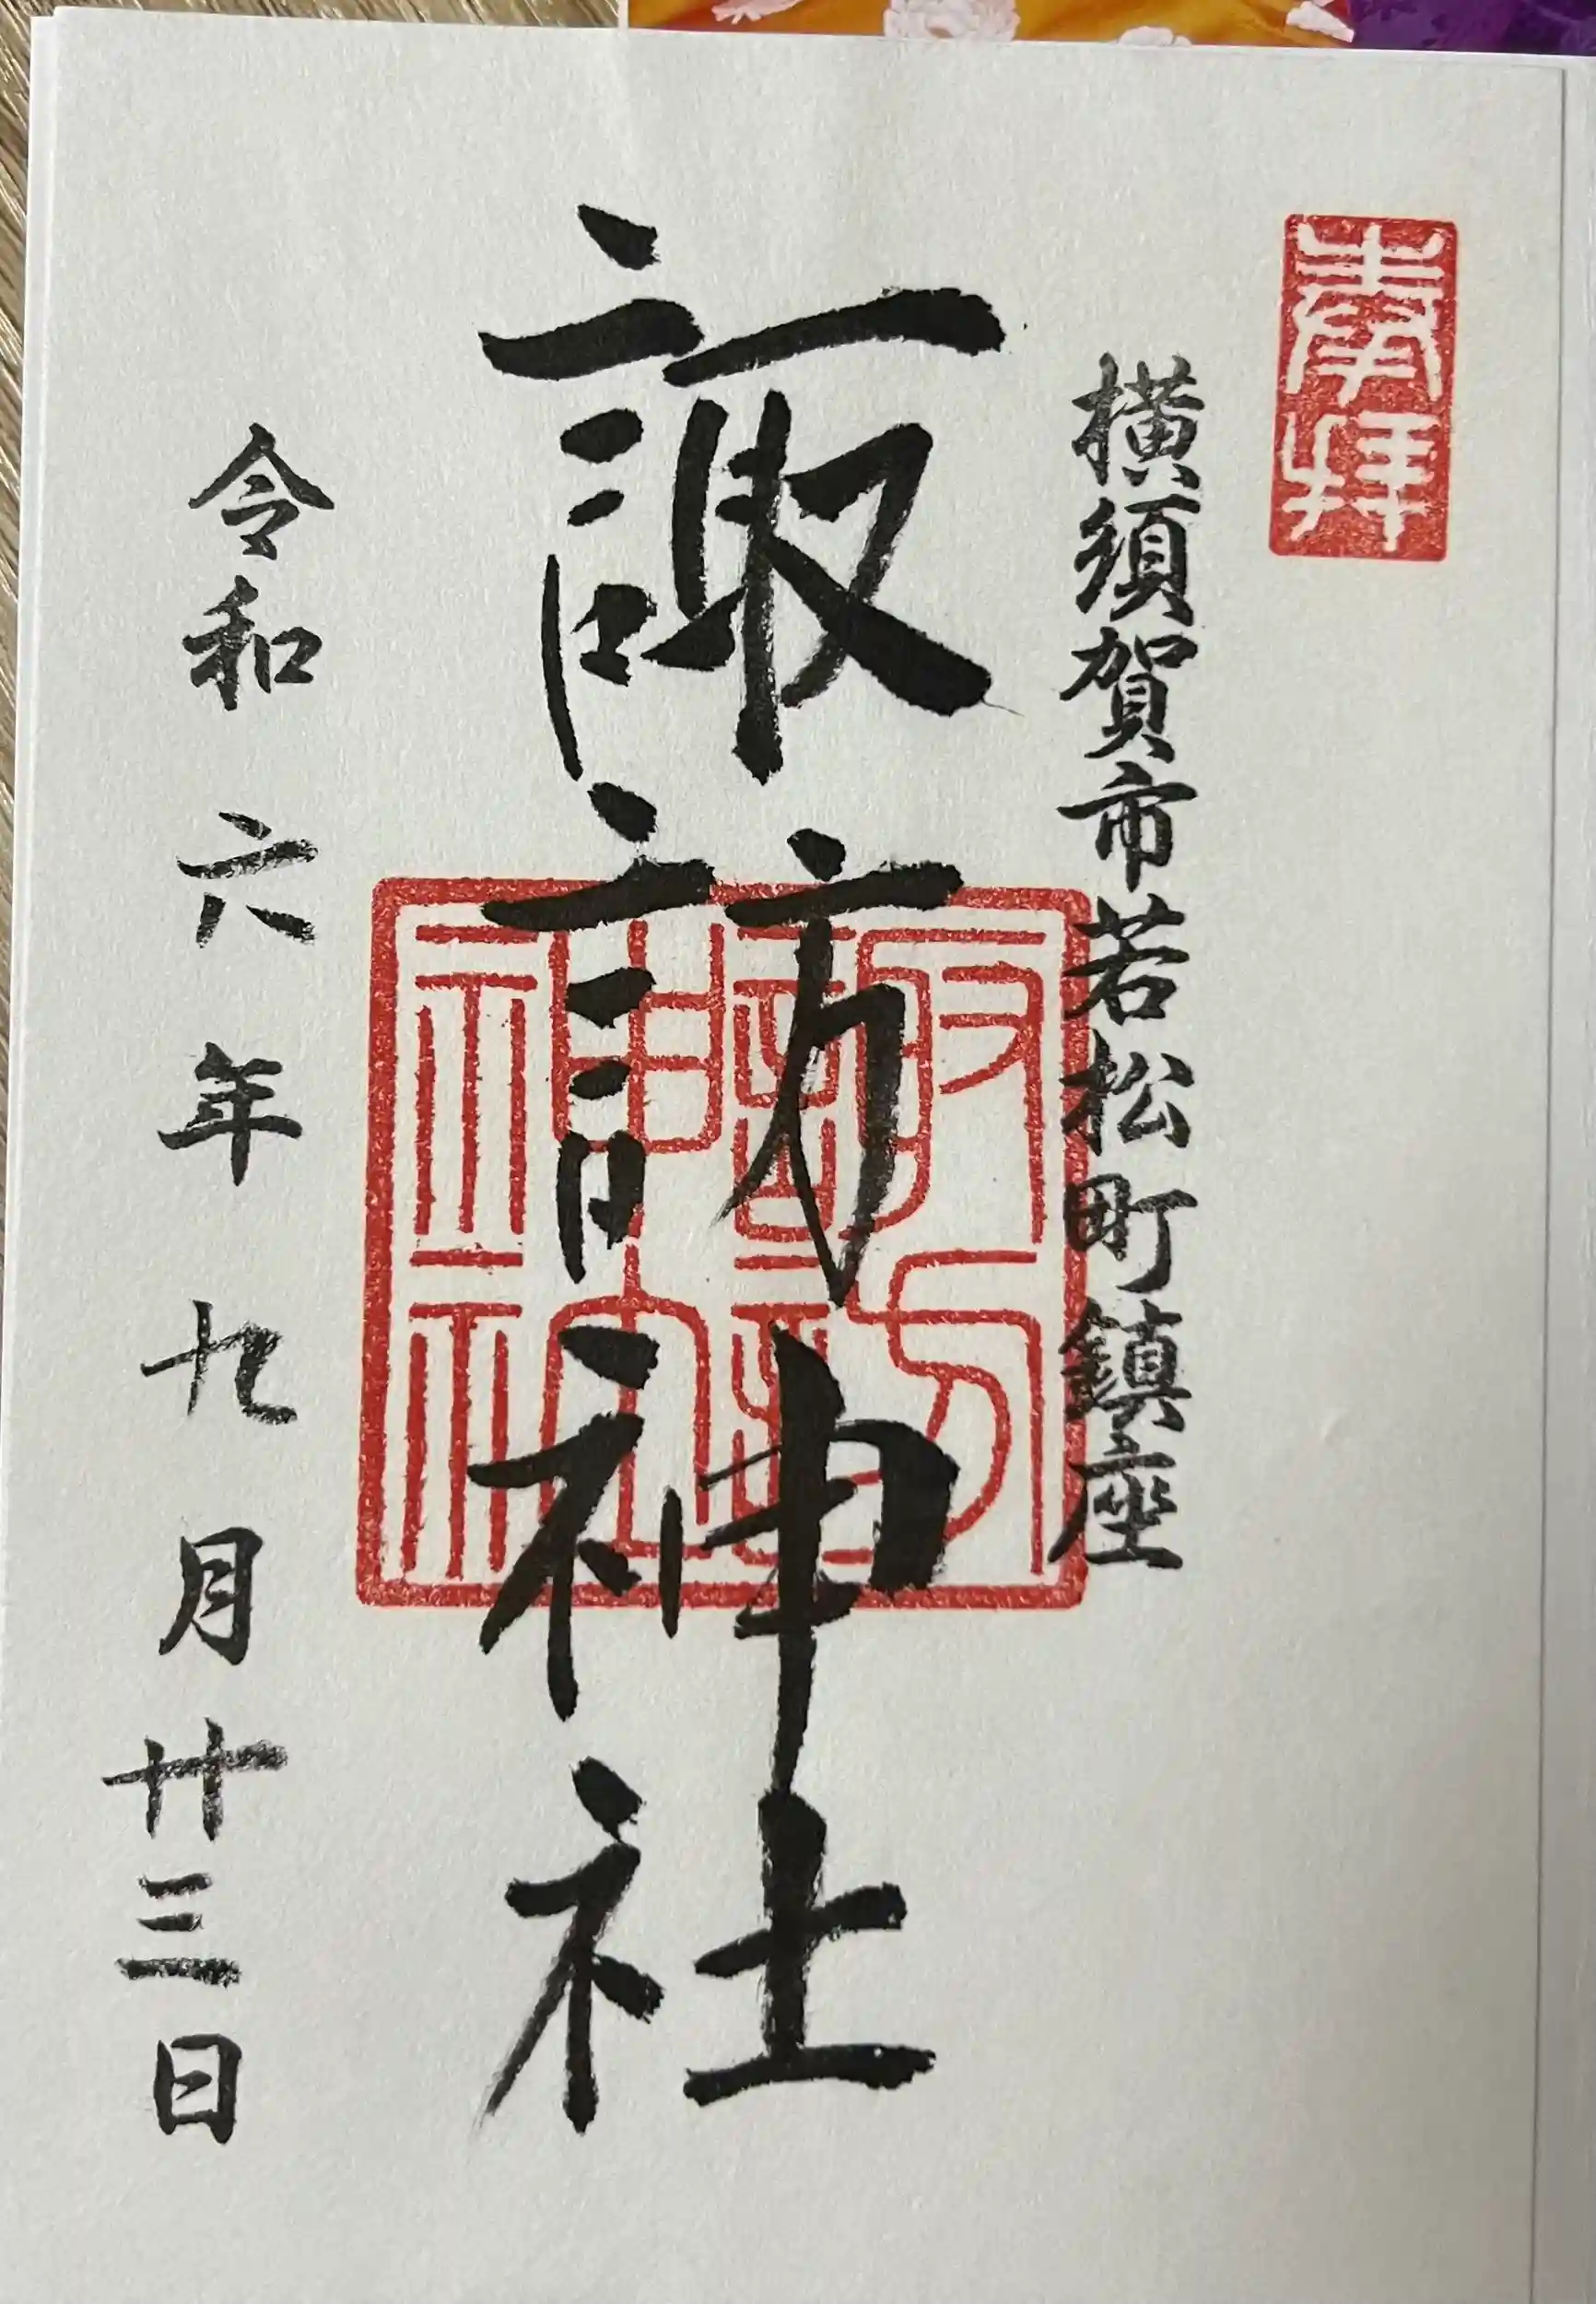 奉拝
横須賀市若松町鎮座
諏訪神社
諏訪神社
令和六年九月廿三日